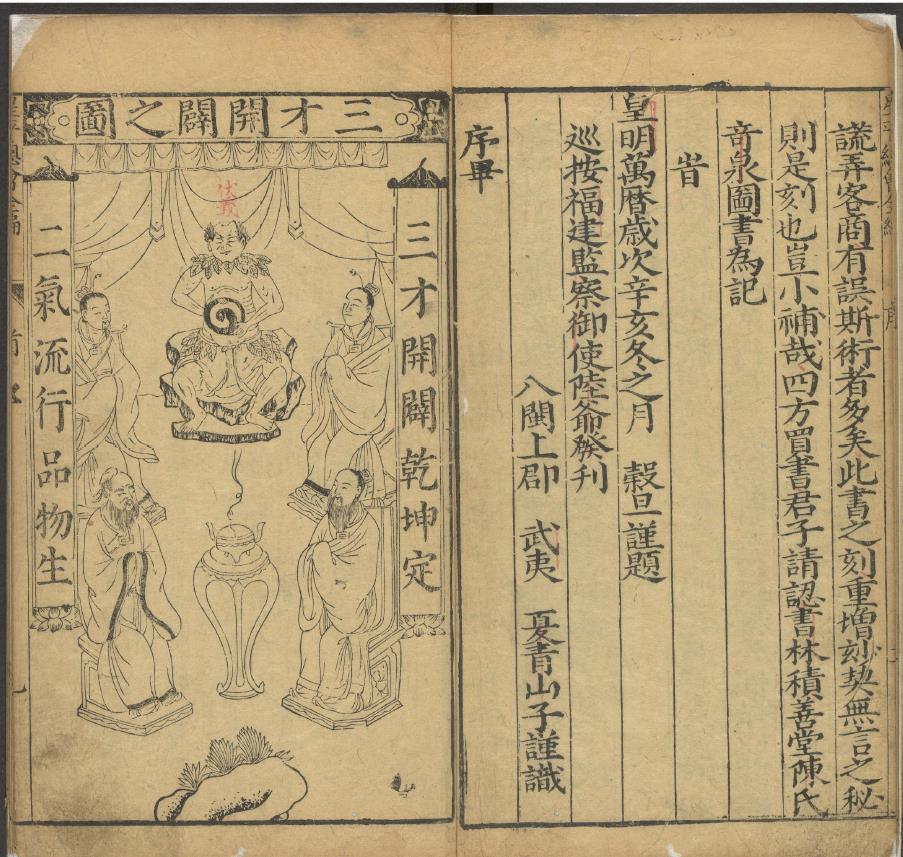 謊弄客商有誤斯術者多矣此書之刻重增刻契無言之秘
則是刻也豈小補哉四方買書君子請認書林積善堂陳氏
奇泉圖書為記
旹
皇明萬曆歲次辛亥冬之月 穀旦謹題
巡按福建監察御使陸爺發刊
八閩上郡 武夷 夏青山子謹識
序畢
三才開闢之圖
三才開闢乾坤定
伏羲
二氣流行品物生